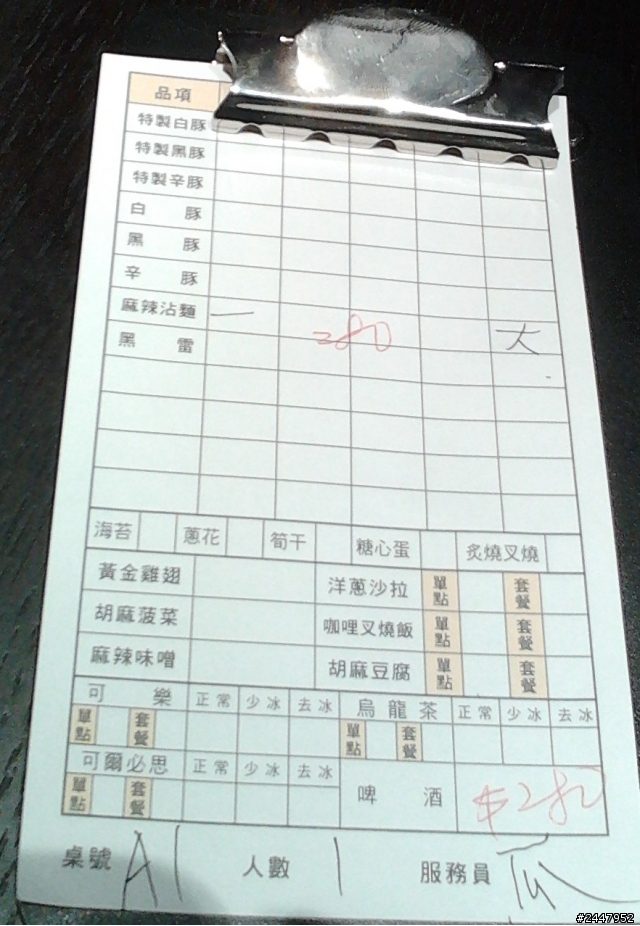 品項
特製白豚
特製黑豚
特製辛豚
白 豚
黑 豚
辛 豚
麻辣沾麵 一 280 大
黑 雷
海苔 蔥花 筍干 糖心蛋 炙燒叉燒
黃金雞翅 洋蔥沙拉 單點 套餐
胡麻菠菜 咖哩叉燒飯 單點 套餐
麻辣味噌 胡麻豆腐 單點 套餐
可 樂 正常 少冰 去冰 烏龍茶 正常 少冰 去冰
單點 套餐 單點 套餐
可爾必思 正常 少冰 去冰 啤 酒 $280
單點 套餐
桌號 A1 人數 1 服務員
#2447952